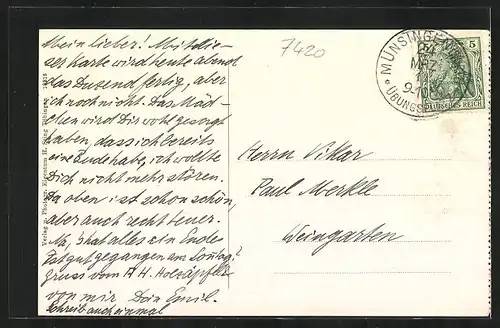 Mein lieber! Mit die-
ser Karte wird heute abend
das Dusend fertig, aber
ich noch nicht. Das Mäd-
chen wird Dir wohl gesagt
haben, dass ich bereits
eine Bude habe, ich wollte
Dich nicht mehr stören.
Da oben ist schon schön,
aber auch recht teuer.
Na, 's hat alles ein Ende
gut gegangen am Sonntag?
Gruss vom A H. Holzäpfle
von mir. Dein Emil.
Schreib auch einmal
7420
MÜNSINGEN
24
MRZ
9-10
ÜBUNGS
5
DEUTSCHES REICH
Herrn Vikar
Paul Merkle
Weingarten
Verlag u. Photogr. Eigentum H.